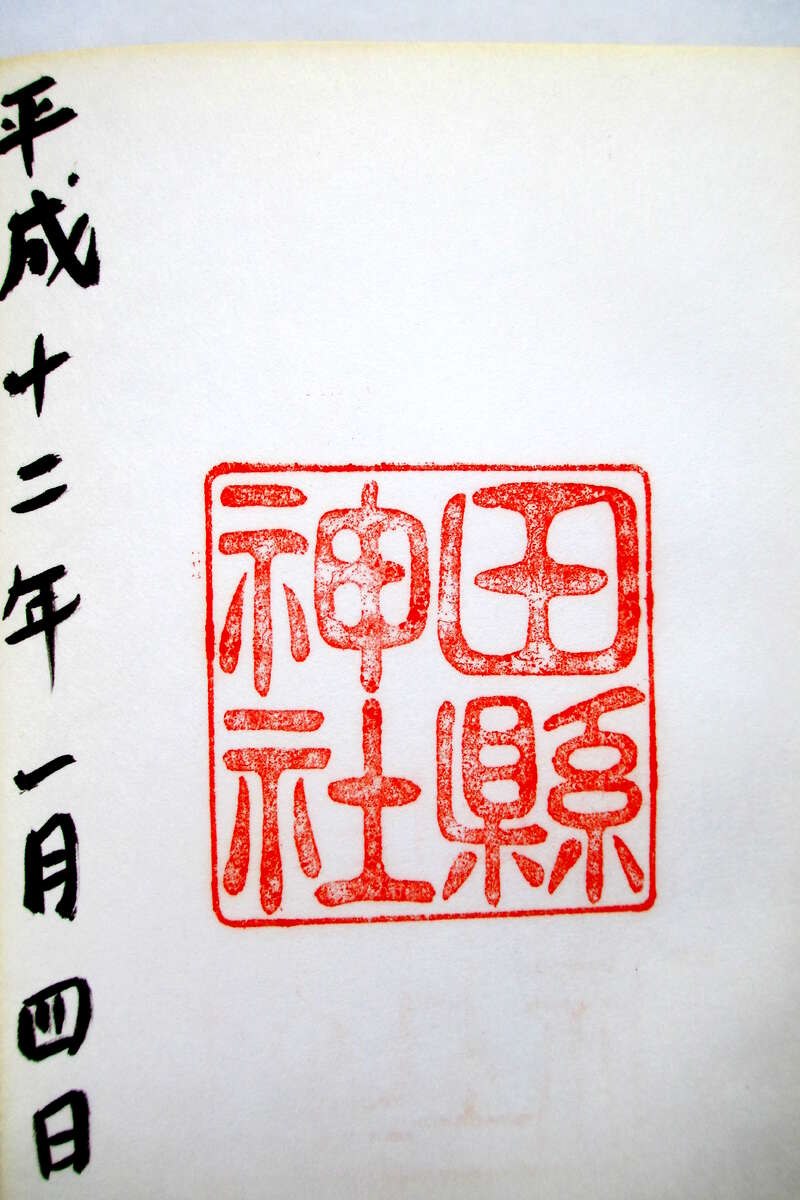 田縣
神社
平成十二年一月四日